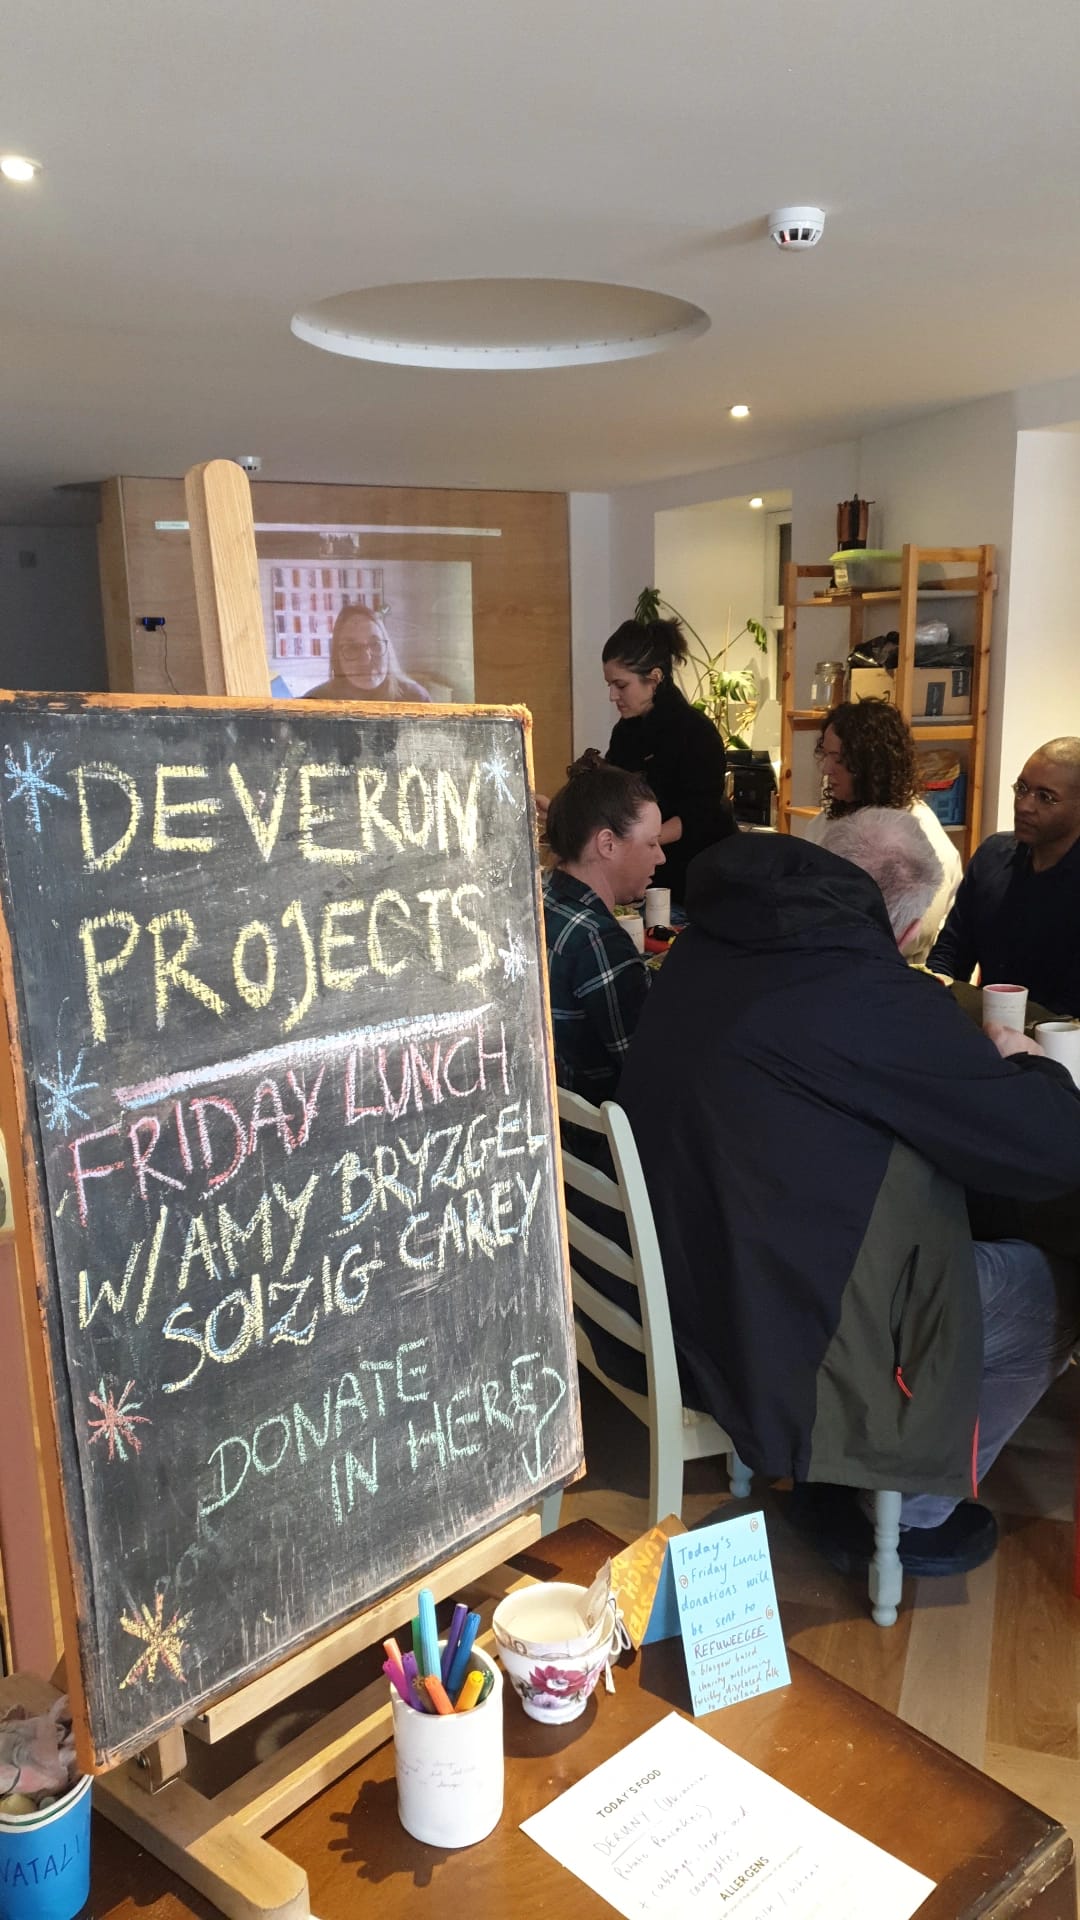 DEVERON
PROJECTS
FRIDAY LUNCH
W/ AMY BRYZGEL
SOIZIG CAREY
DONATE
IN HERE
Today's
Friday Lunch
donations will
be sent to
REFUWEEGEE
a Glasgow based
charity welcoming
forcibly displaced folk
to Scotland
LUNCH
TODAY'S FOOD
DERUNY (Ukrainian
Potato Pancakes)
+ cabbage, leeks and
courgettes
ALLERGENS
milk / wheat
NATALI